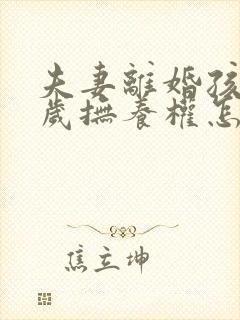 夫妻離婚孩
歲撫養權怎
焦立坤